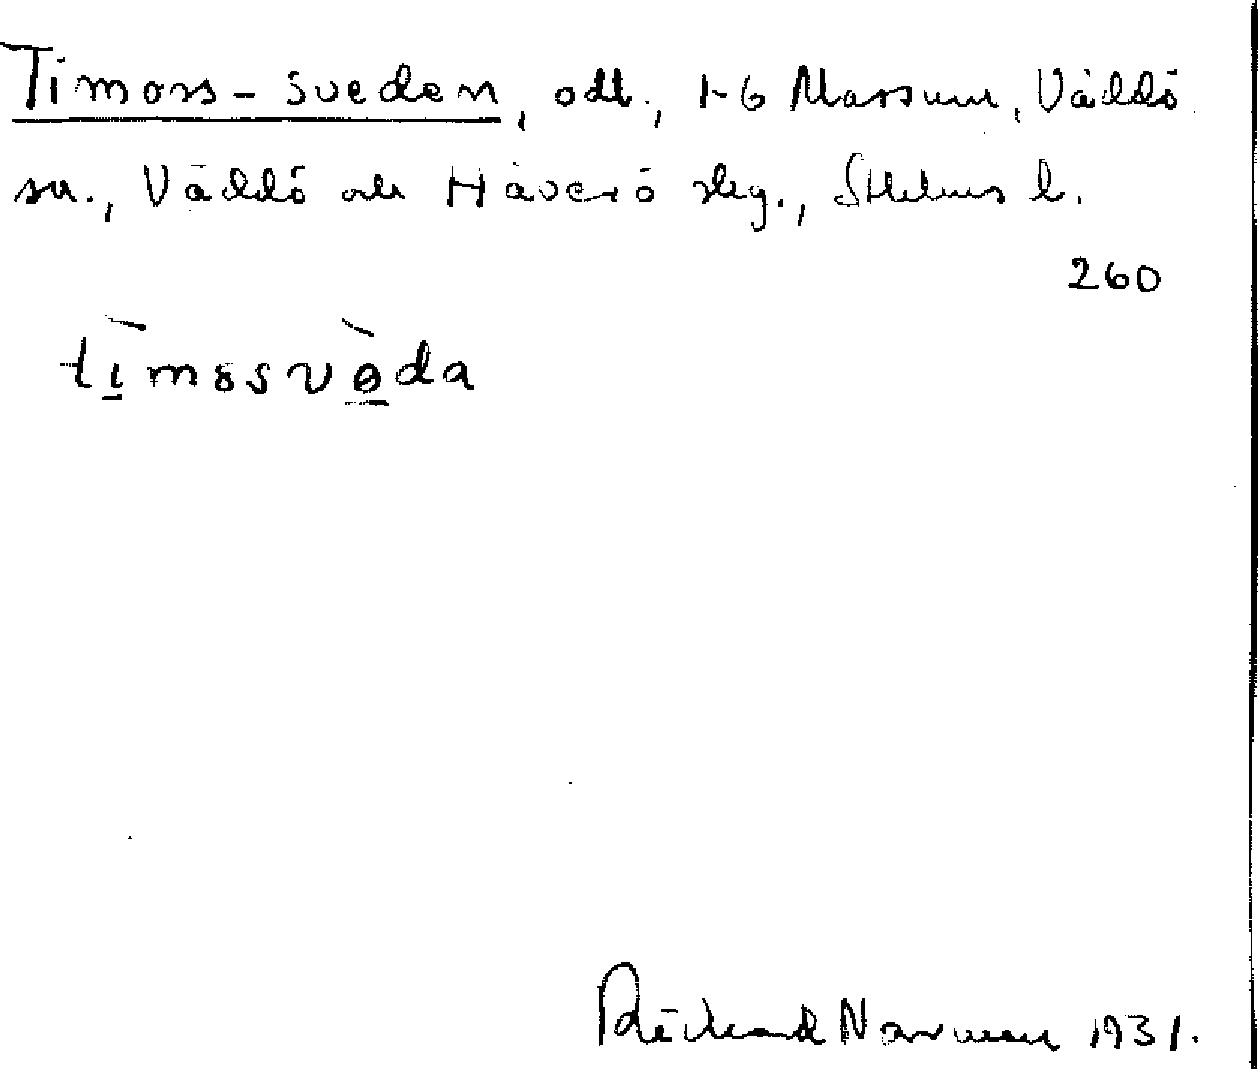 Timoss-sveden, odl., 1-6 Massum, Väddö
sn., Väddö och Häverö skg., Sthlms l.
260
timosveda
Rickard Norman 1931.